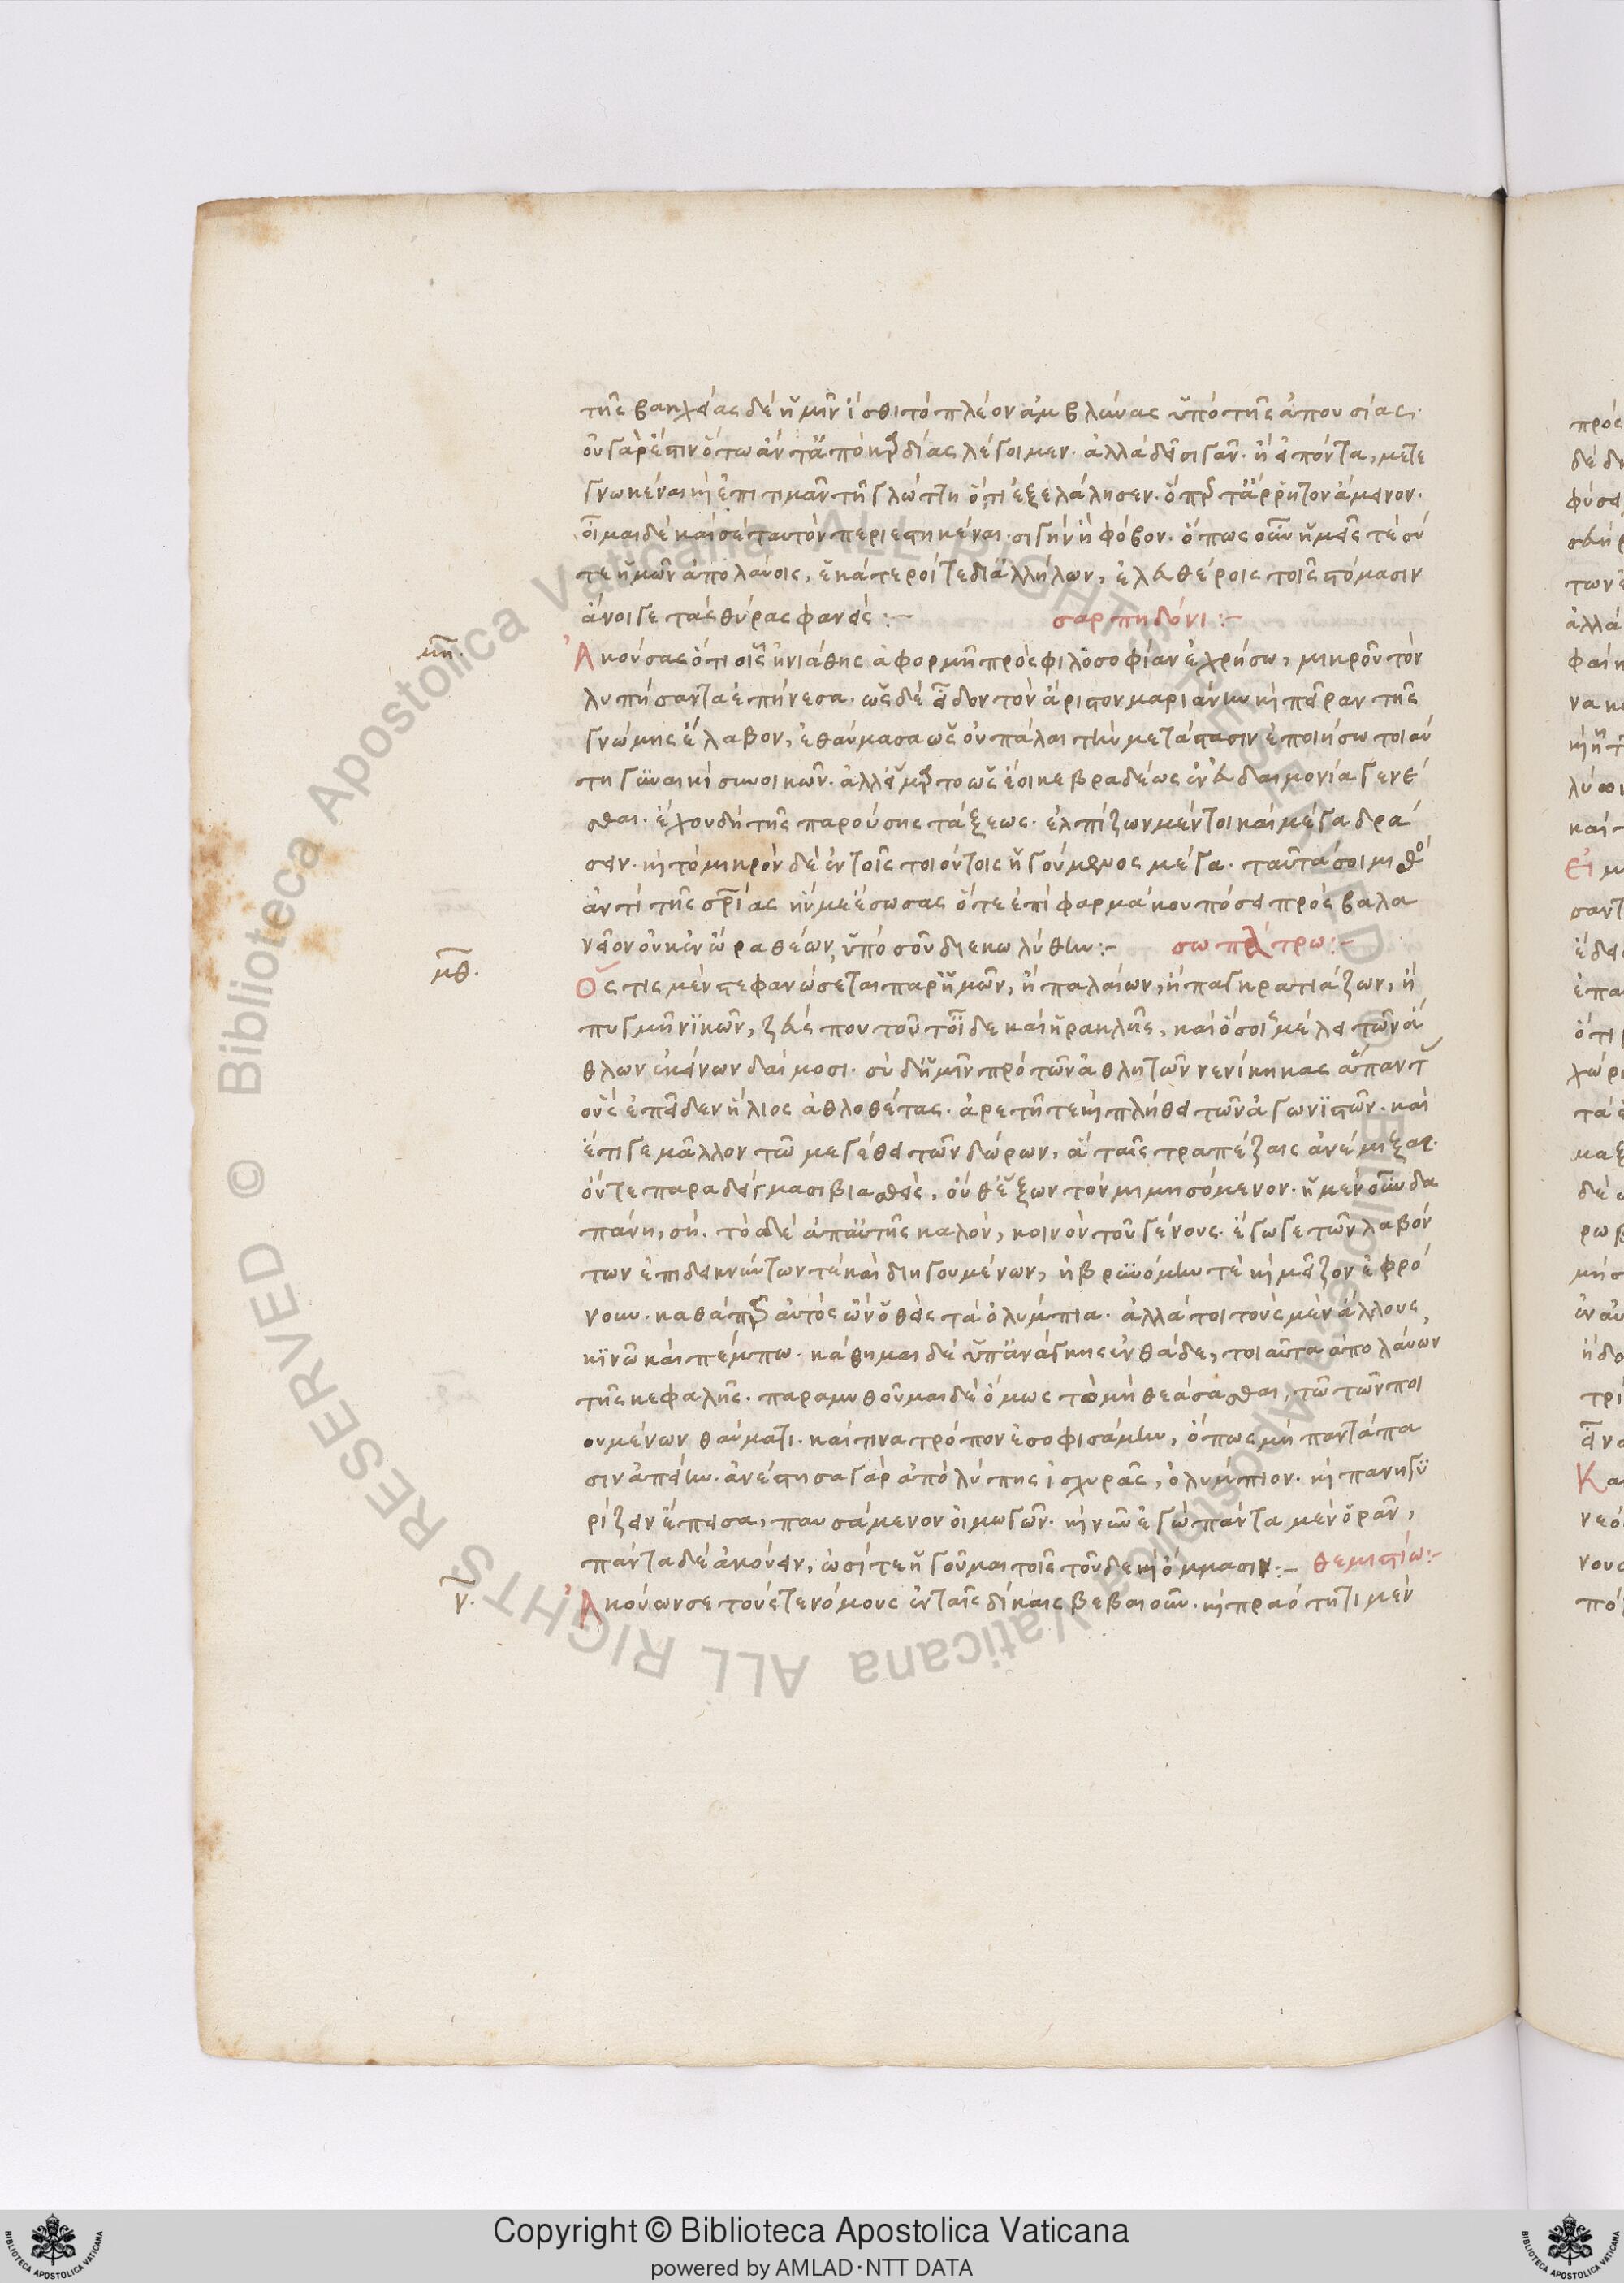 τῆς βασιλείας δὲ ἡμῖν ἴσθι τὸ πλέον ἀμβλύνας ὑπὸ τῆς ἀπουσίας·
οὐ γὰρ ἔστιν ὅτω ἂν τἀπὸ καρδίας λέγοιμεν· ἀλλὰ δεῖ σιγᾶν· ἢ εἰπόντα, μετε
γνωκέναι καὶ ἐπιτιμᾶν τῇ γλώττη ὅ,τι ἐξελάλησεν· ὅπερ τἄρρητον ἄμεινον·
οἶμαι δὲ καὶ σὲ ταυτὸν περιεστηκέναι σιγὴν ἢ φόβον· ὅπως οὖν ἡμεῖς τὲ σύ
τε ἡμῶν ἀπολαύοις, ἑκάτεροί τε δι' ἀλλήλων, ἐλευθέροις τοῖς στόμασιν
ἄνοιγε τὰς θύρας φανείς :–
σαρπηδόνι :–
μη.
Ἀκούσας ὅτι οἷς ἠνιάθης ἀφορμῇ πρὸς φιλοσοφίαν ἐχρήσω, μικροῦ τὸν
λυπήσαντα ἐπήνεσα· ὡς δὲ εἶδον τὸν ἄριστον μαριάνην καὶ πεῖραν τῆς
γνώμης ἔλαβον, ἐθαύμασα ὡς οὐ πάλαι τὴν μετάστασιν ἐποιήσω τοιαύ
τη γυναικὶ συνοικῶν· ἀλλ' εἵμαρτο ὡς ἔοικε βραδέως ἐν εὐδαιμονία γενέ
σθαι· ἔχου δὴ τῆς παρούσης τάξεως· ἐλπίζων μέντοι καὶ μέγα δρά
σειν· καὶ τὸ μικρὸν δὲ ἐν τοῖς τοιούτοις ἡγούμενος μέγα· ταῦτά σοι μισθὸ
ἀντὶ τῆς σωτηρίας ἥν με ἔσωσας ὅτε ἐπὶ φαρμάκου πόσει πρὸς βαλα
νεῖον οὐκ ἐν ὥρα θέων, ὑπὸ σοῦ διεκωλύθην :– σωπάτρω :–
μθ.
Ὅς τις μὲν στεφανώσεται παρ' ἡμῶν, ἢ παλαίων, ἢ παγκρατιάζων, ἢ
πυγμῇ νικῶν, ζεύς που τοῦτ' οἶδε καὶ ἡρακλῆς, καὶ ὅσοις μέλει τῶν ἄ
θλων ἐκείνων δαίμοσι· σὺ δ' ἡμῖν πρὸ τῶν ἀθλητῶν νενίκηκας ἅπαντ
οὓς ἐπεῖδεν ἥλιος ἀθλοθέτας· ἀρετῇ τε καὶ πλήθει τῶν ἀγωνιστῶν· καὶ
ἔτι γε μᾶλλον τῶ μεγέθει τῶν δώρων, ἃ ταῖς τραπέζαις ἀνέμιξας·
οὔτε παραδείγμασι βιασθεὶς, οὔθ' ἕξων τὸν μιμησόμενον· ἡ μὲν οὖν δα
πάνη, σή. τὸ δὲ ἀπ' αὐτῆς καλὸν, κοινὸν τοῦ γένους· ἔγωγε τῶν λαβόν
των ἐπιδεικνύντων τὲ καὶ διηγουμένων, ἡβρυνόμην τὲ καὶ μεῖζον ἐφρό
νουν· καθάπερ αὐτὸς ὢν ὁ θεὶς τὰ ὀλύμπια· ἀλλά τοι τοὺς μὲν ἄλλους
κινῶ καὶ πέμπω· κάθημαι δὲ ὑπ' ἀνάγκης ἐνθάδε, τοιαῦτα ἀπολαύων
τῆς κεφαλῆς· παραμυθοῦμαι δὲ ὅμως τὸ μὴ θεάσασθαι, τῶ τῶν ποι
ουμένων θαύματι· καί τινα τρόπον ἐσοφισάμην, ὅπως μὴ παντάπα
σιν ἀπείην· ἀνέστησα γὰρ ἀπὸ λύπης ἰσχυρᾶς, ὀλύμπιον· καὶ πανηγυ
ρίζειν ἔπεισα, παυσάμενον οἰμωγῶν· καὶ νῦν ἐγὼ πάντα μὲν ὁρᾶν,
πάντα δὲ ἀκούειν, ὠσί τε ἡγοῦμαι τοῖς τοῦδε καὶ ὄμμασιν :– θεμιστίω :–
ν.
Ἀκούων σε τούς τε νόμους ἐν ταῖς δίκαις βεβαιοῦν· καὶ πραότητι μὲν
Copyright © Biblioteca Apostolica Vaticana
powered by AMLAD·NTT DATA